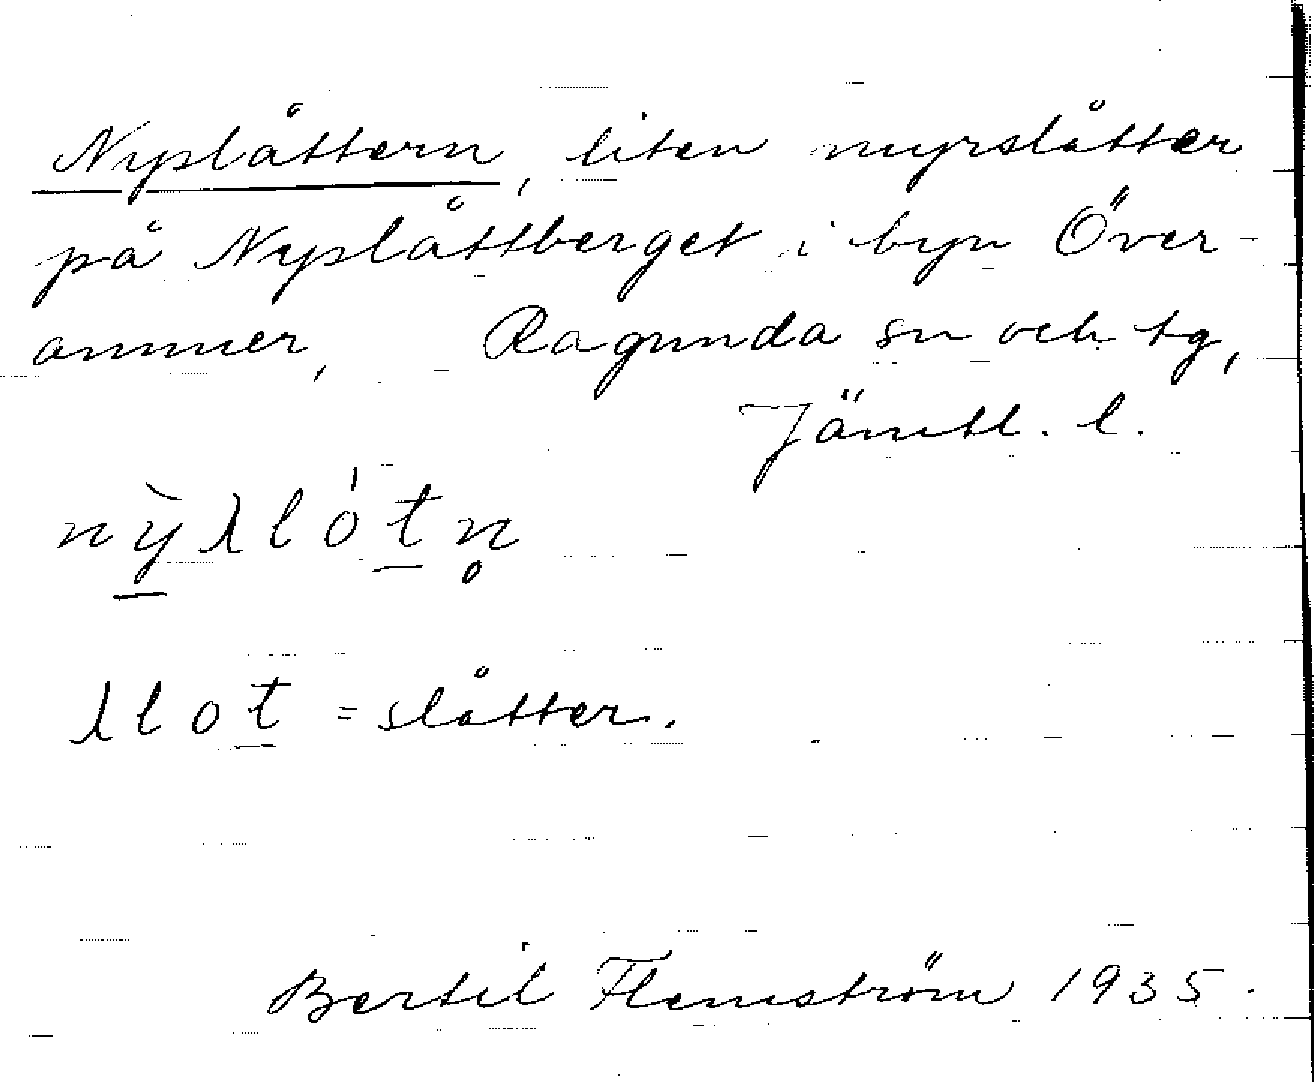 Nyslåttern, liten myrslåtter
på Nyslåttberget i byn Över-
ammer, Ragunda sn och tg,
Jämtl. l.
nỳλlótn̥
λlot = slåtter.
Bertil Flemström 1935.